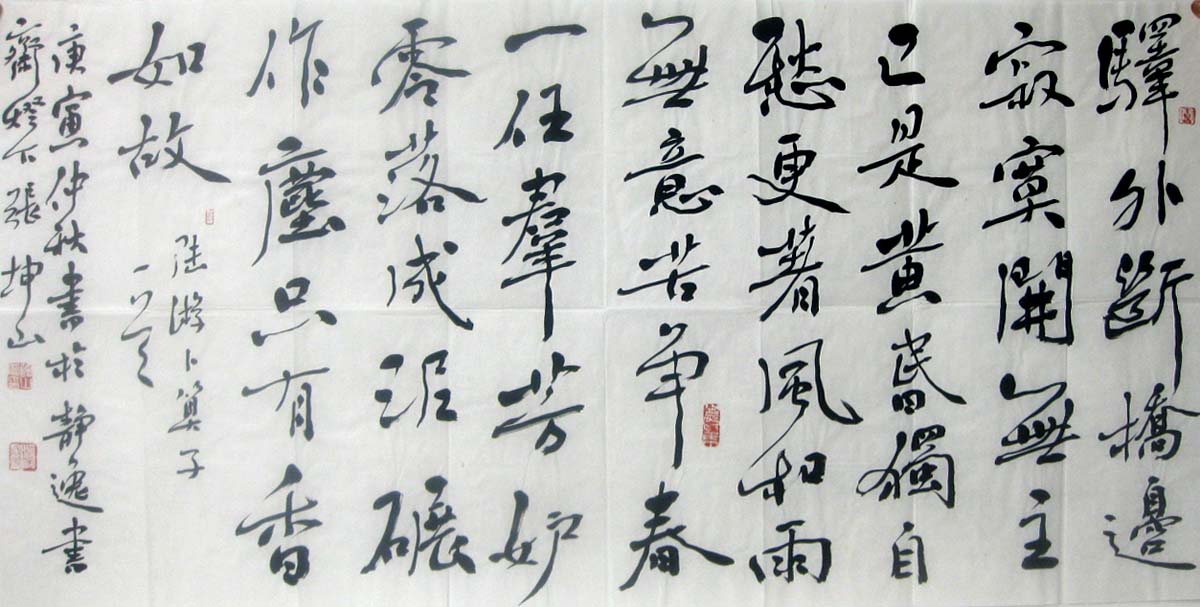 驛外斷橋邊
寂寞開無主
已是黃昏獨自
愁更著風和雨
無意苦爭春
一任羣芳妒
零落成泥碾
作塵只有香
如故
陸游卜算子
一首
庚寅仲秋書於靜逸書
齋燈下張坤山